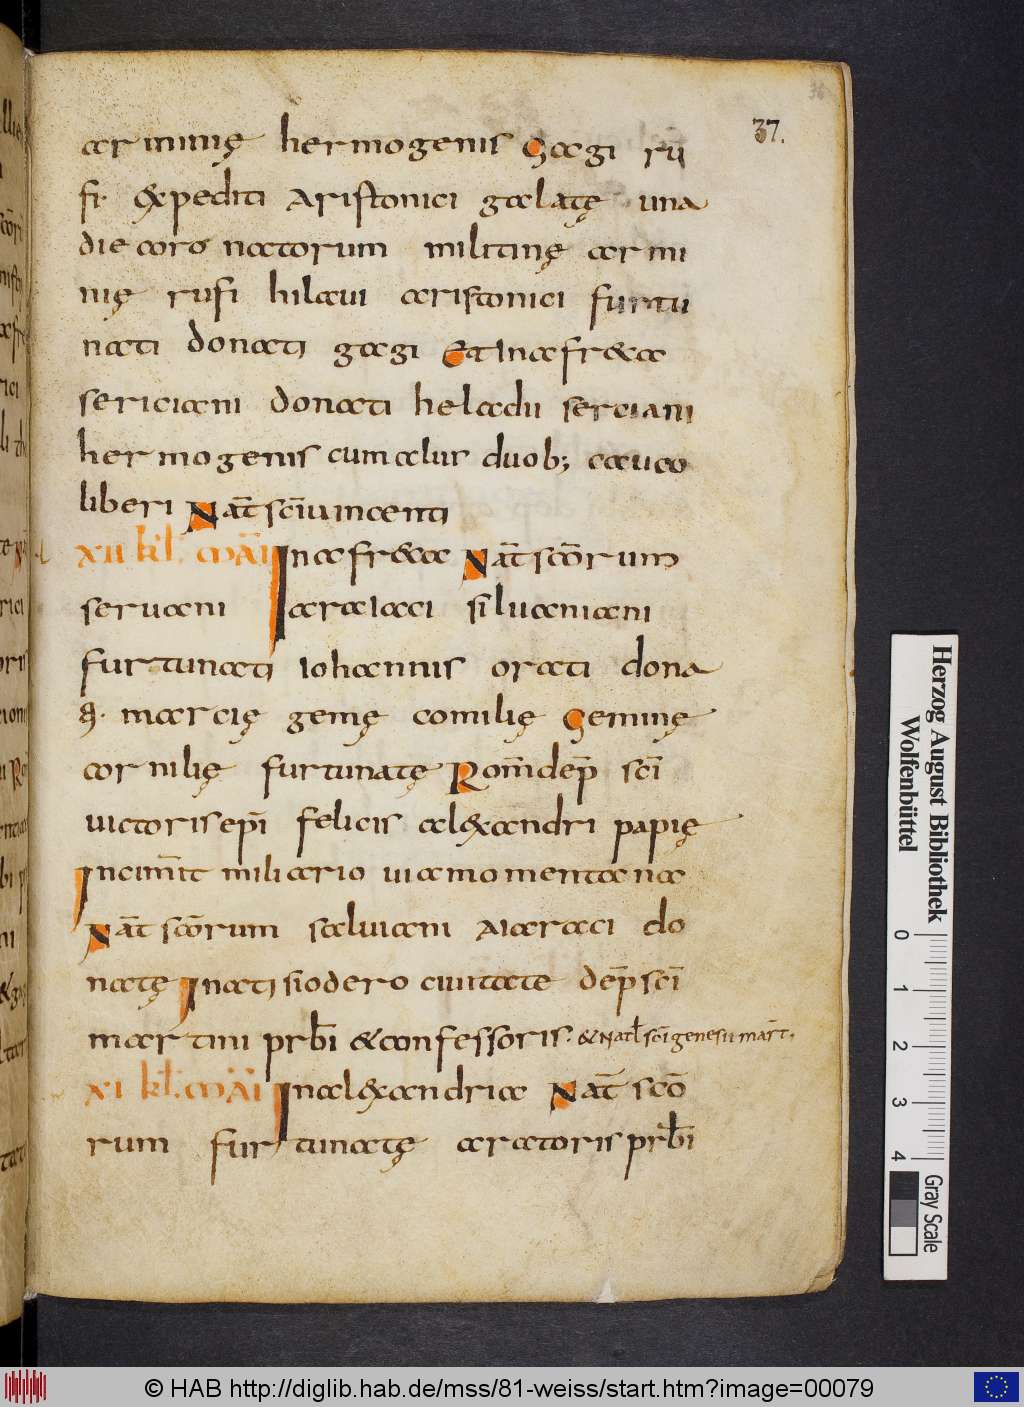 37.
arminię hermogenis Gagi rū
fi· expediti aristonici galatę una
die coro natorum militinę armi
nię rufi hilaui aristonici furtu
nati donati gagi Et In africa
sericiani donati heladii serciani
hermogenis cum aliis duob; cauco
liberi Nat̄ sc̄i uincenti
XII kl̄. māi In africa Nat̄ scōrum
seruani iaraiaci siluaniani
furtunati iohannis orati dona
ę· marcię gemę comilię Geminę
cornilię furtunatę Rom̄ dep̄ sc̄i
uictoris ep̄i felicis alexandri papię
In cimīt miliario uia momentana
Nat̄ scōrum saluiani aiaraci do
natę In atisiodero ciuitate dep̄ sc̄i
martini prb̄i & confessoris. & Natl̄ sc̄i genesii mart̄.
XI kl̄. māi In alexandria Nat̄ scō
rum furtunatę aratoris prb̄i
Herzog August Bibliothek
Wolfenbüttel
0 1 2 3 4
Gray Scale
© HAB http://diglib.hab.de/mss/81-weiss/start.htm?image=00079